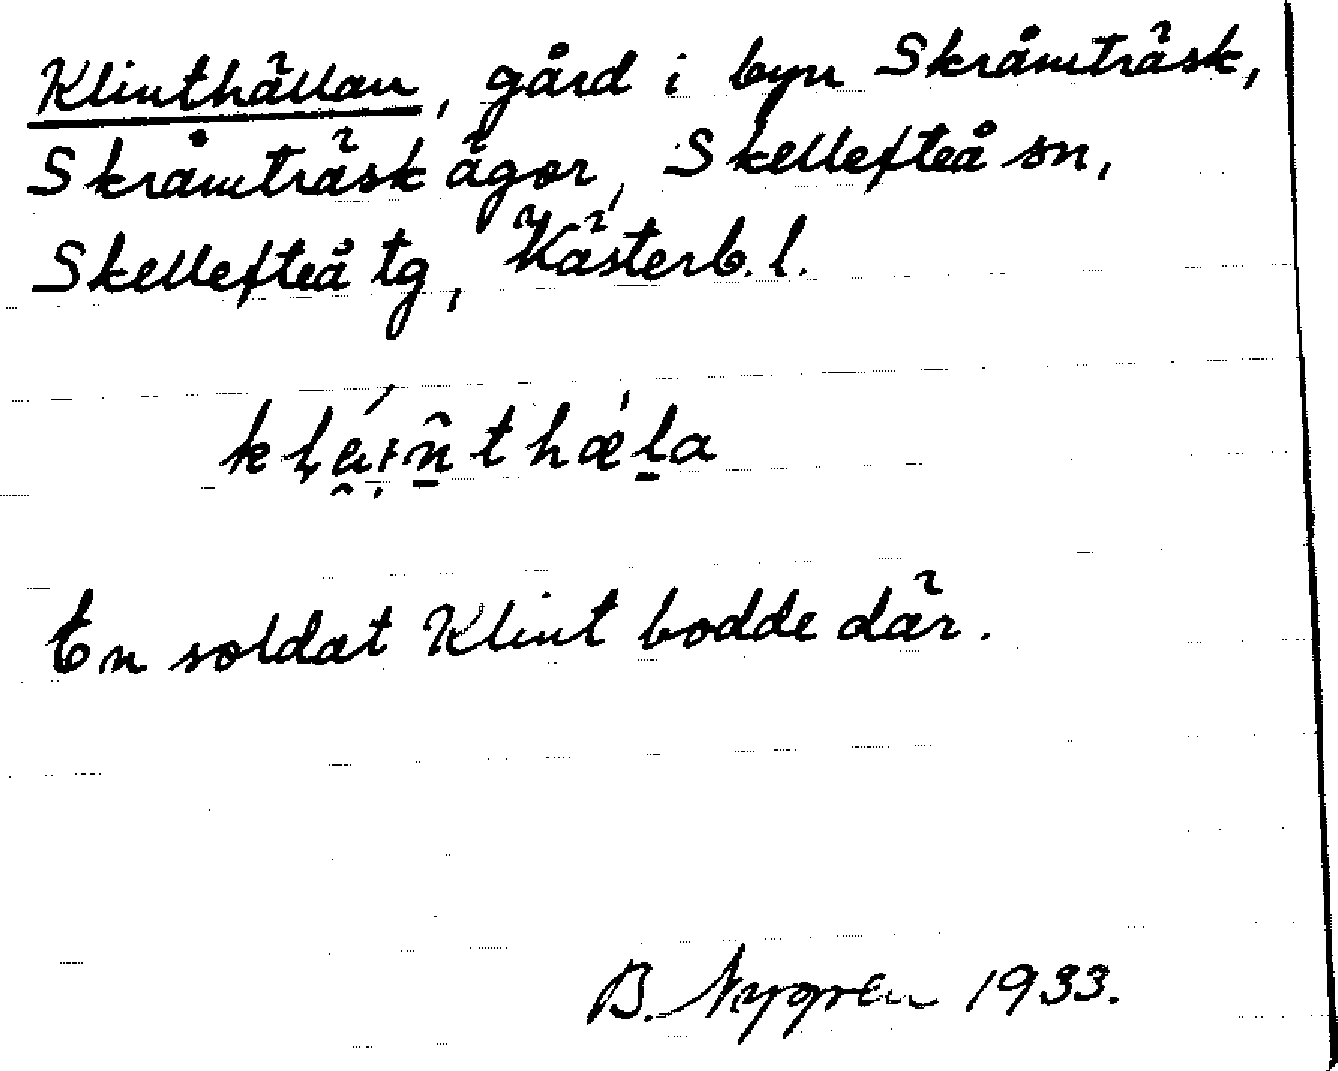 Klinthällan, gård i byn Skråmträsk,
Skråmträsk ägor, Skellefteå sn,
Skellefteå tg, Västerb. l.
En soldat Klint bodde där.
B. Nygren 1933.